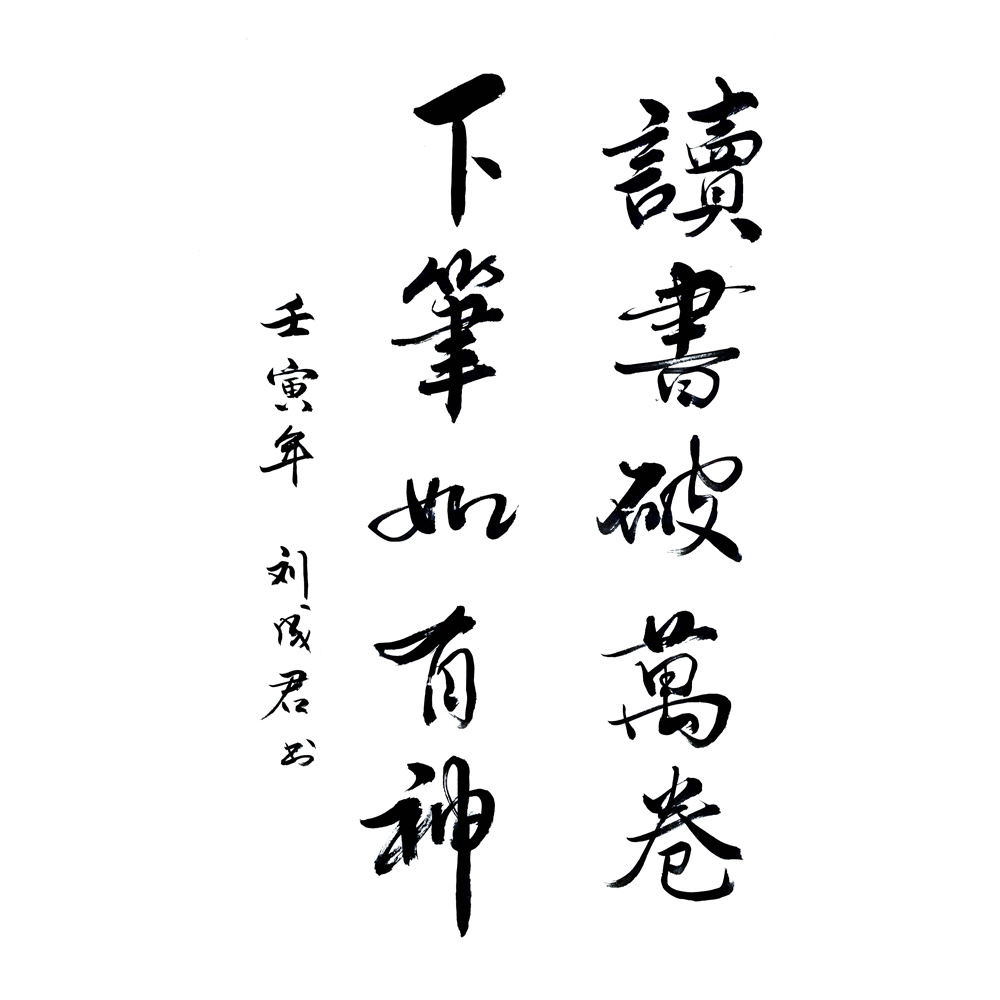 讀書破萬卷
下筆如有神
壬寅年 刘成君书